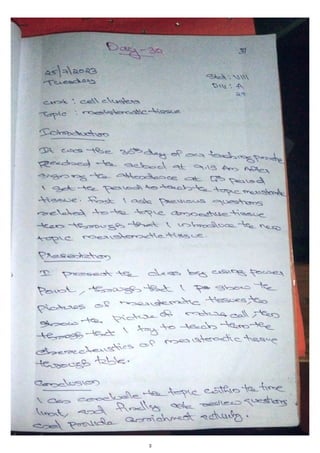 Day-30
31
25/7/2023
Tuesday
Std: VIII
Div: A
Unit: cell clusters
Topic: meristematic tissue
Introduction
It was the 30th day of our teaching practice
Reached the school at 9.15 Am After
signing the attendance at period
I get the period to teach the topic meristematic
tissue. First I ask previous questions
related to the topic tissue
then through that I introduce the new
topic meristematic tissue.
Presentation
I present the class by using power
Point, through that I show the
pictures of meristematic tissues then
show the picture of cell, then
through that I try to teach them the
characteristics of meristematic tissue
through table.
Conclusion
I can conclude the topic within the time
limit, and finally ask review questions
and provide enrichment activity.